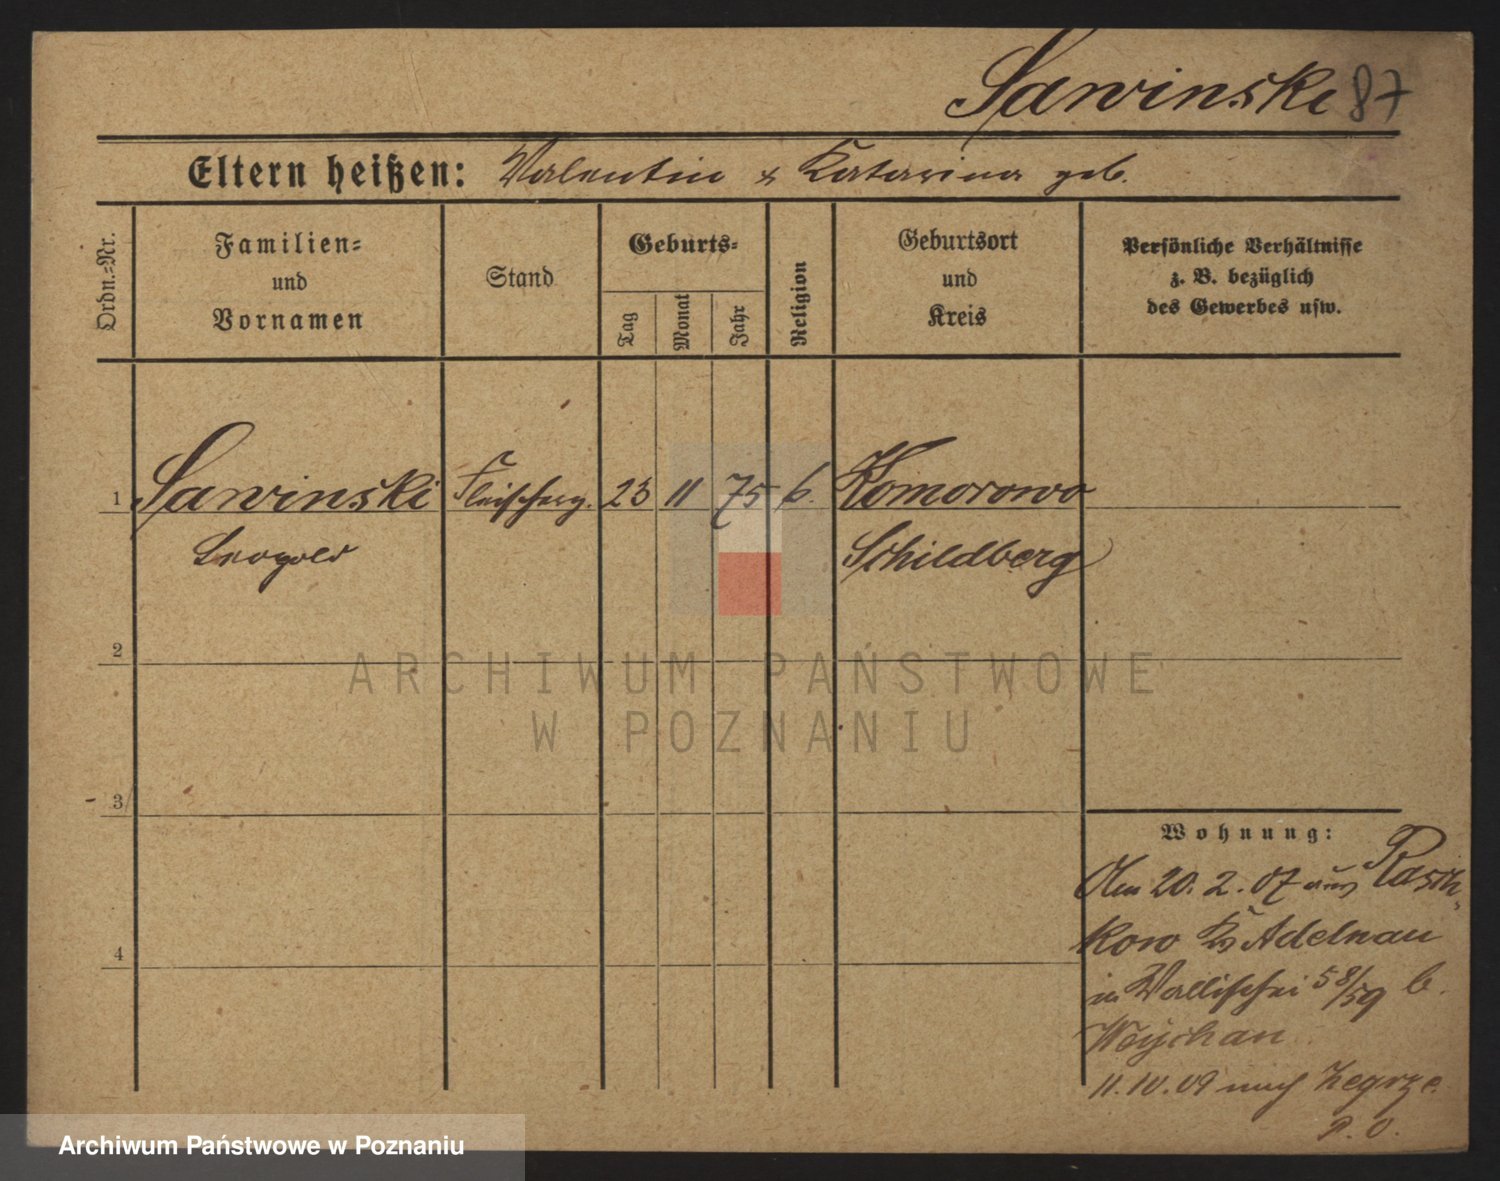 Sawinski 87
Eltern heißen: Valentin & Katarina geb.
Ordn.=Nr.
Familien=
und
Vornamen
Stand
Geburts=
Tag
Monat
Jahr
Religion
Geburtsort
und
Kreis
Persönliche Verhältnisse
z. B. bezüglich
des Gewerbes usw.
1 Sawinski Fleischerg. 23 11 75 k. Komorowo
Leopold Schildberg
2
3
4
Wohnung:
Am 20. 2. 07 aus Rasch-
kow Ks Adelnau
in Wallischei 58/59 b.
Woychan
11.10.09 nach Zegrze
P. O.
ARCHIWUM PAŃSTWOWE
W POZNANIU
Archiwum Państwowe w Poznaniu